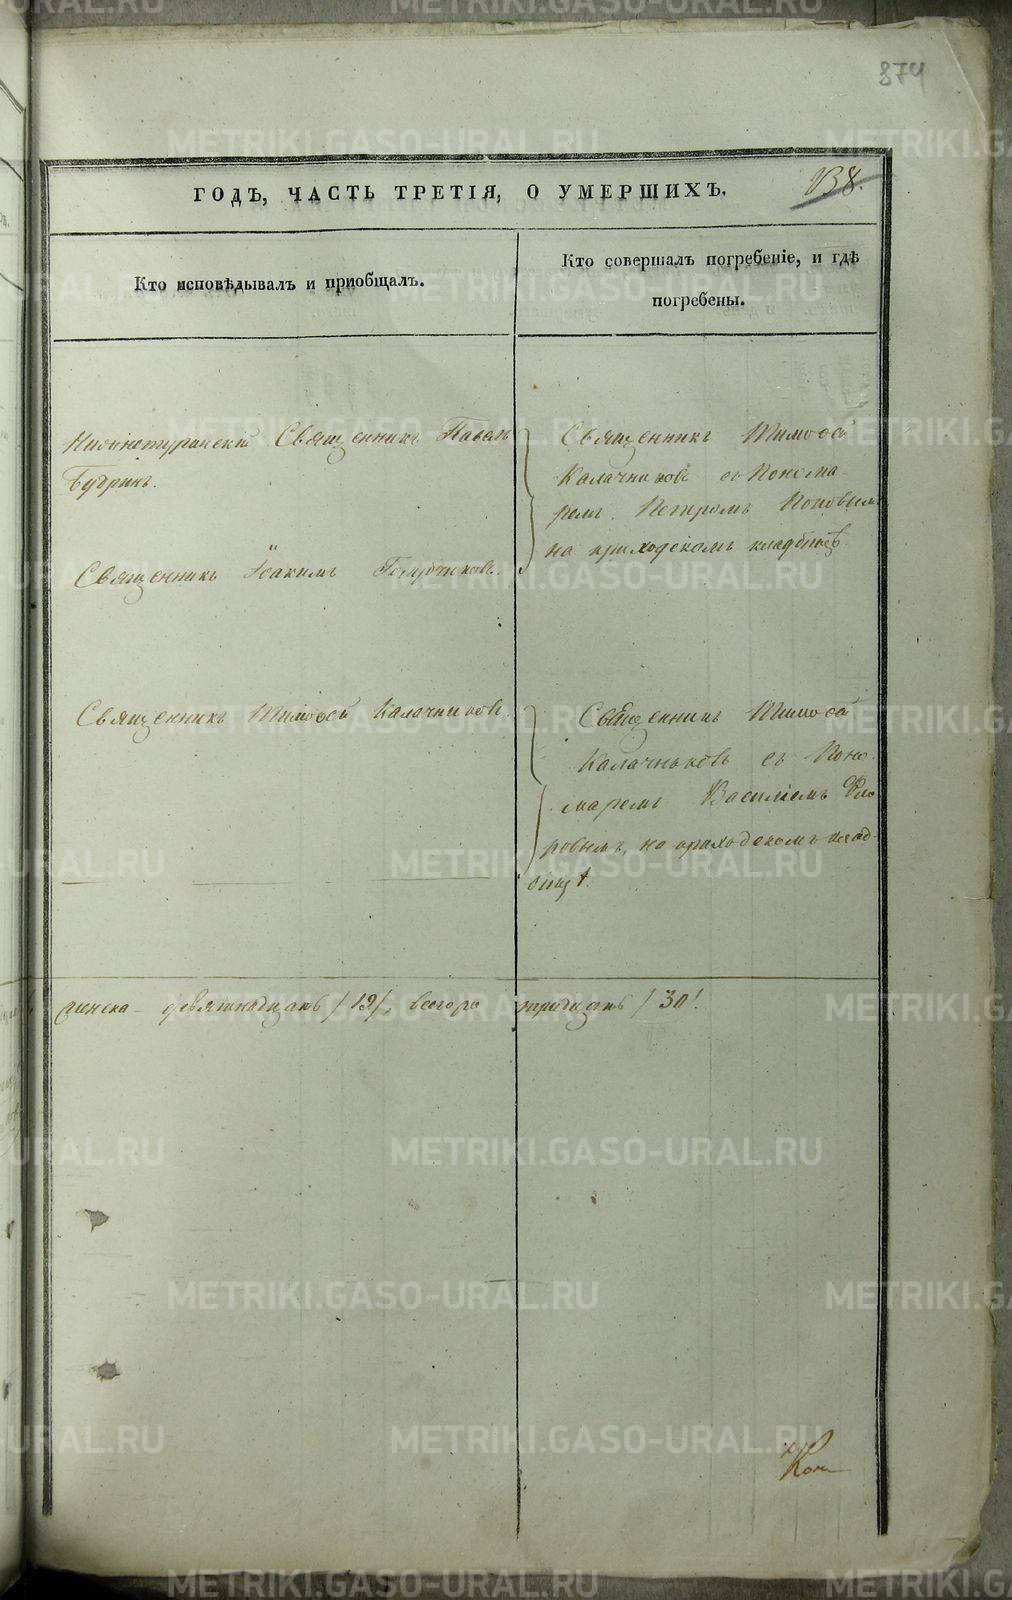 874
138.
ГОДЪ, ЧАСТЬ ТРЕТІЯ, О УМЕРШИХЪ.
Кто исповѣдывалъ и пріобщалъ.
Кто совершалъ погребеніе, и гдѣ
погребены.
Нижнетуринскій Священникъ Павелъ
Будринъ.
Священникъ Тимоѳей
Калачниковъ съ Понома-
ремъ Петромъ Поповымъ
на приходскомъ кладбищѣ.
Священникъ Іоакимъ
Священникъ Тимоѳей Калачниковъ
Священникъ Тимоѳей
Калачниковъ съ Поно-
маремъ Василіемъ
ровымъ, на приходскомъ клад-
бищѣ.
женска девятнадцать /19/, всего тридцать /30/.
Кон
METRIKI.GASO-URAL.RU